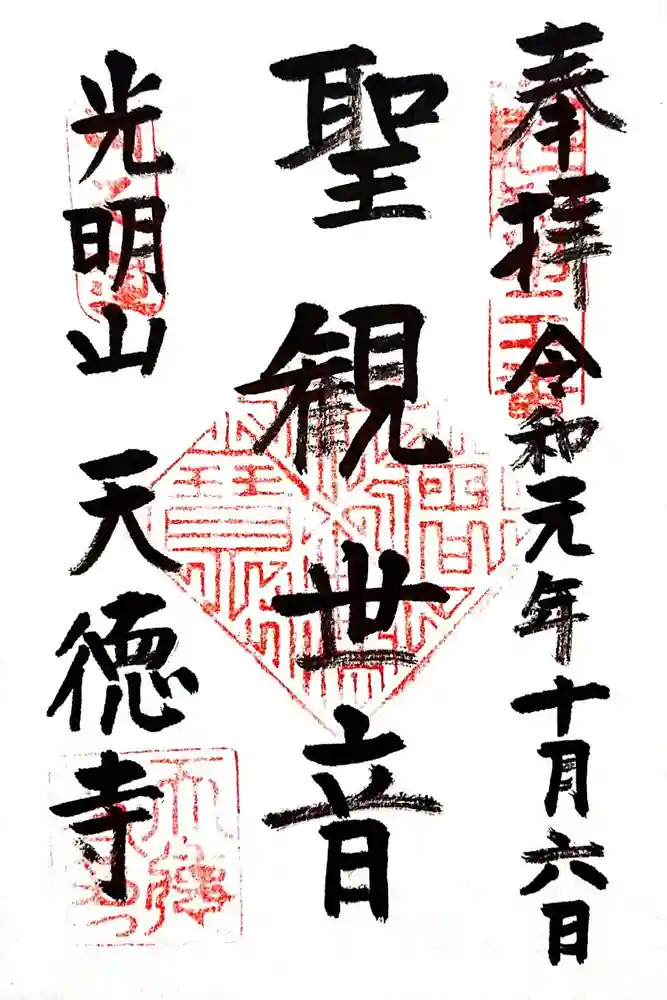 奉拝 令和元年十月六日
聖観世音
光明山 天徳寺